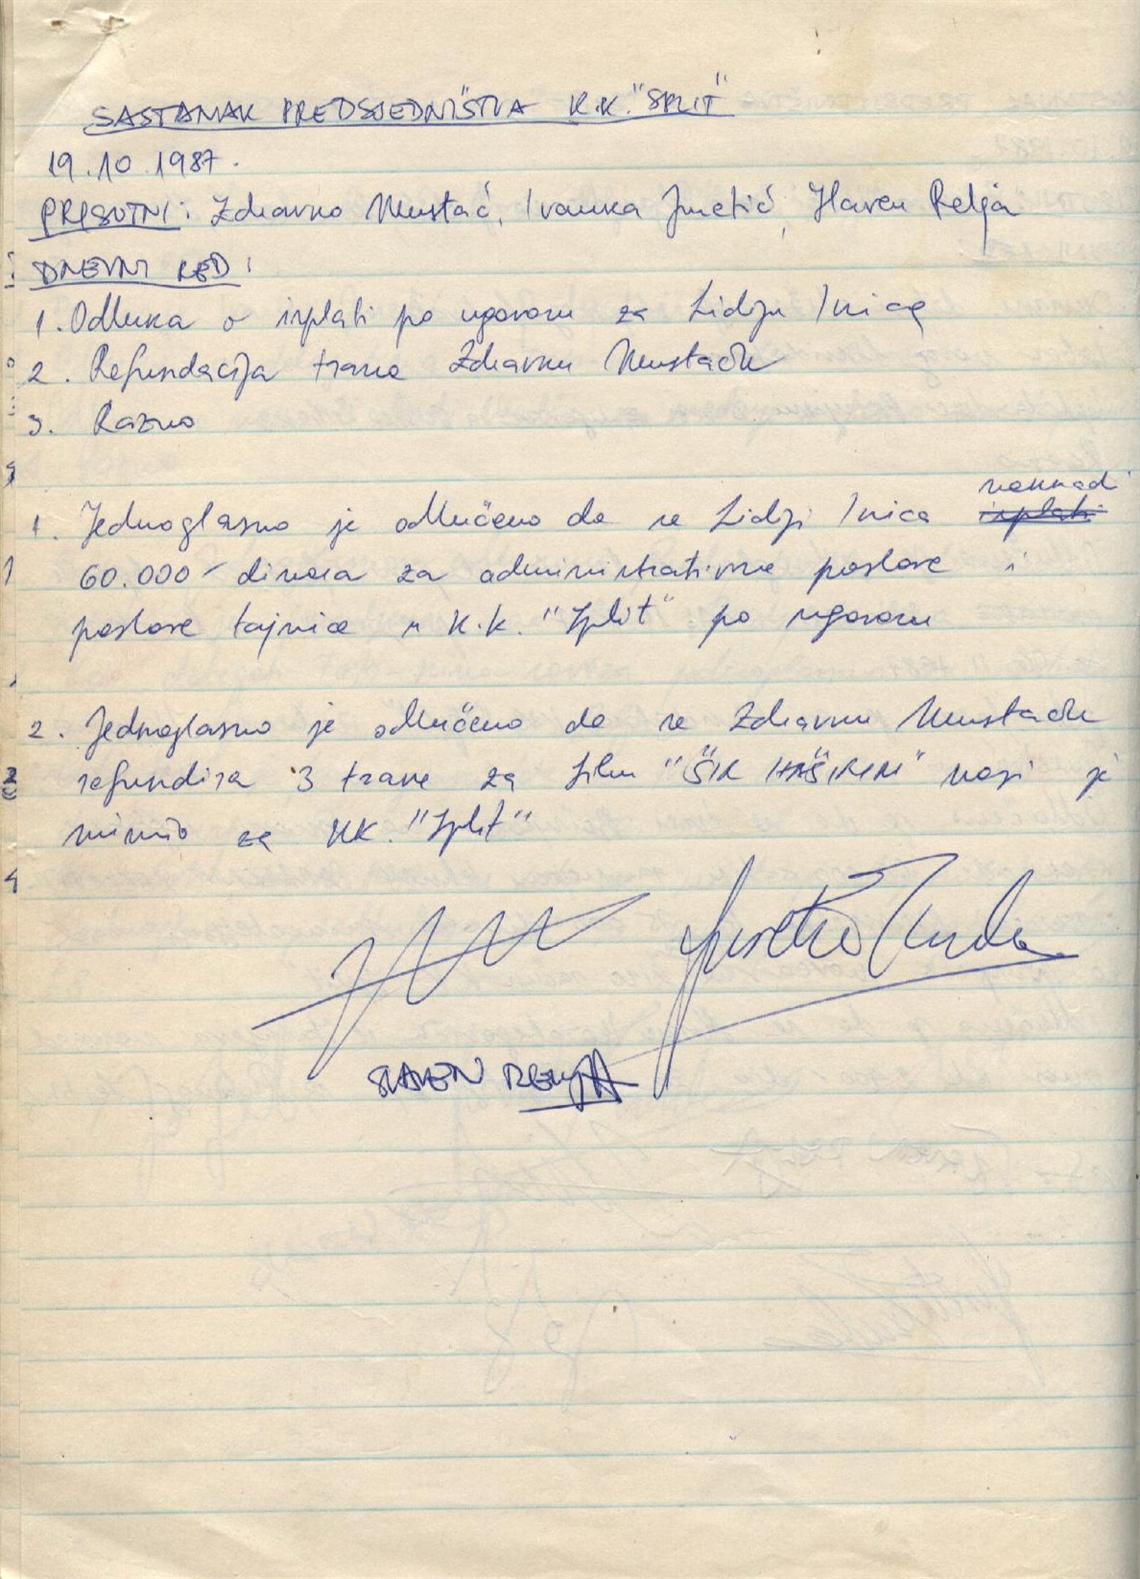 SASTANAK PREDSJEDNIŠTVA K.K. "SPLIT"
19.10.1987.
PRISUTNI: Zdravko Mustać, Ivanka Juretić, Slaven Relja
DNEVNI RED:
1. Odluka o isplati po ugovoru za Lidiju Ivica
2. Refundacija trave Zdravku Mustaću
3. Razno
naknadi
1. Jednoglasno je odlučeno da se Lidiji Ivica isplati
60.000 dinara za administrativne poslove i
poslove tajnice u K.K. "Split" po ugovoru
2. Jednoglasno je odlučeno da se Zdravku Mustaću
refundira 3 trave za film "ŠIR HAŠIRIM" koji je
snimio za KK. "Split"
SLAVEN RELJA